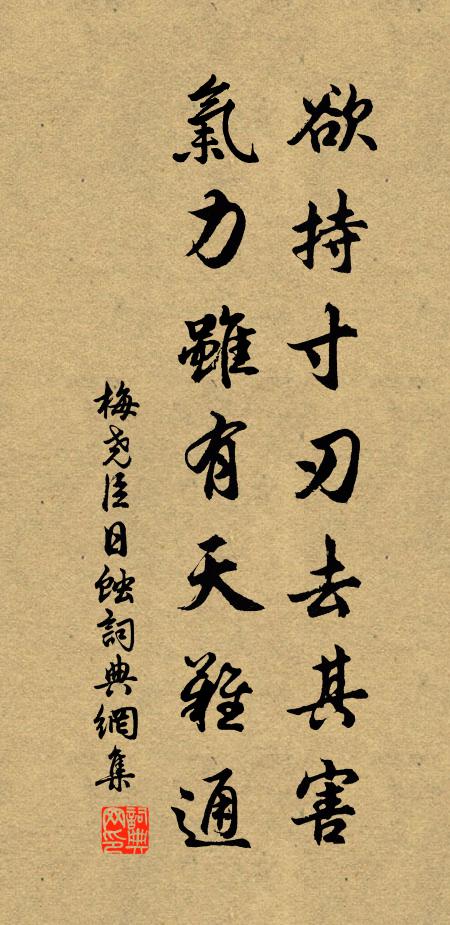 欲持寸刃去其害
氣力雖有天難通
梅尧臣日蝕詞典網集
詞典网印